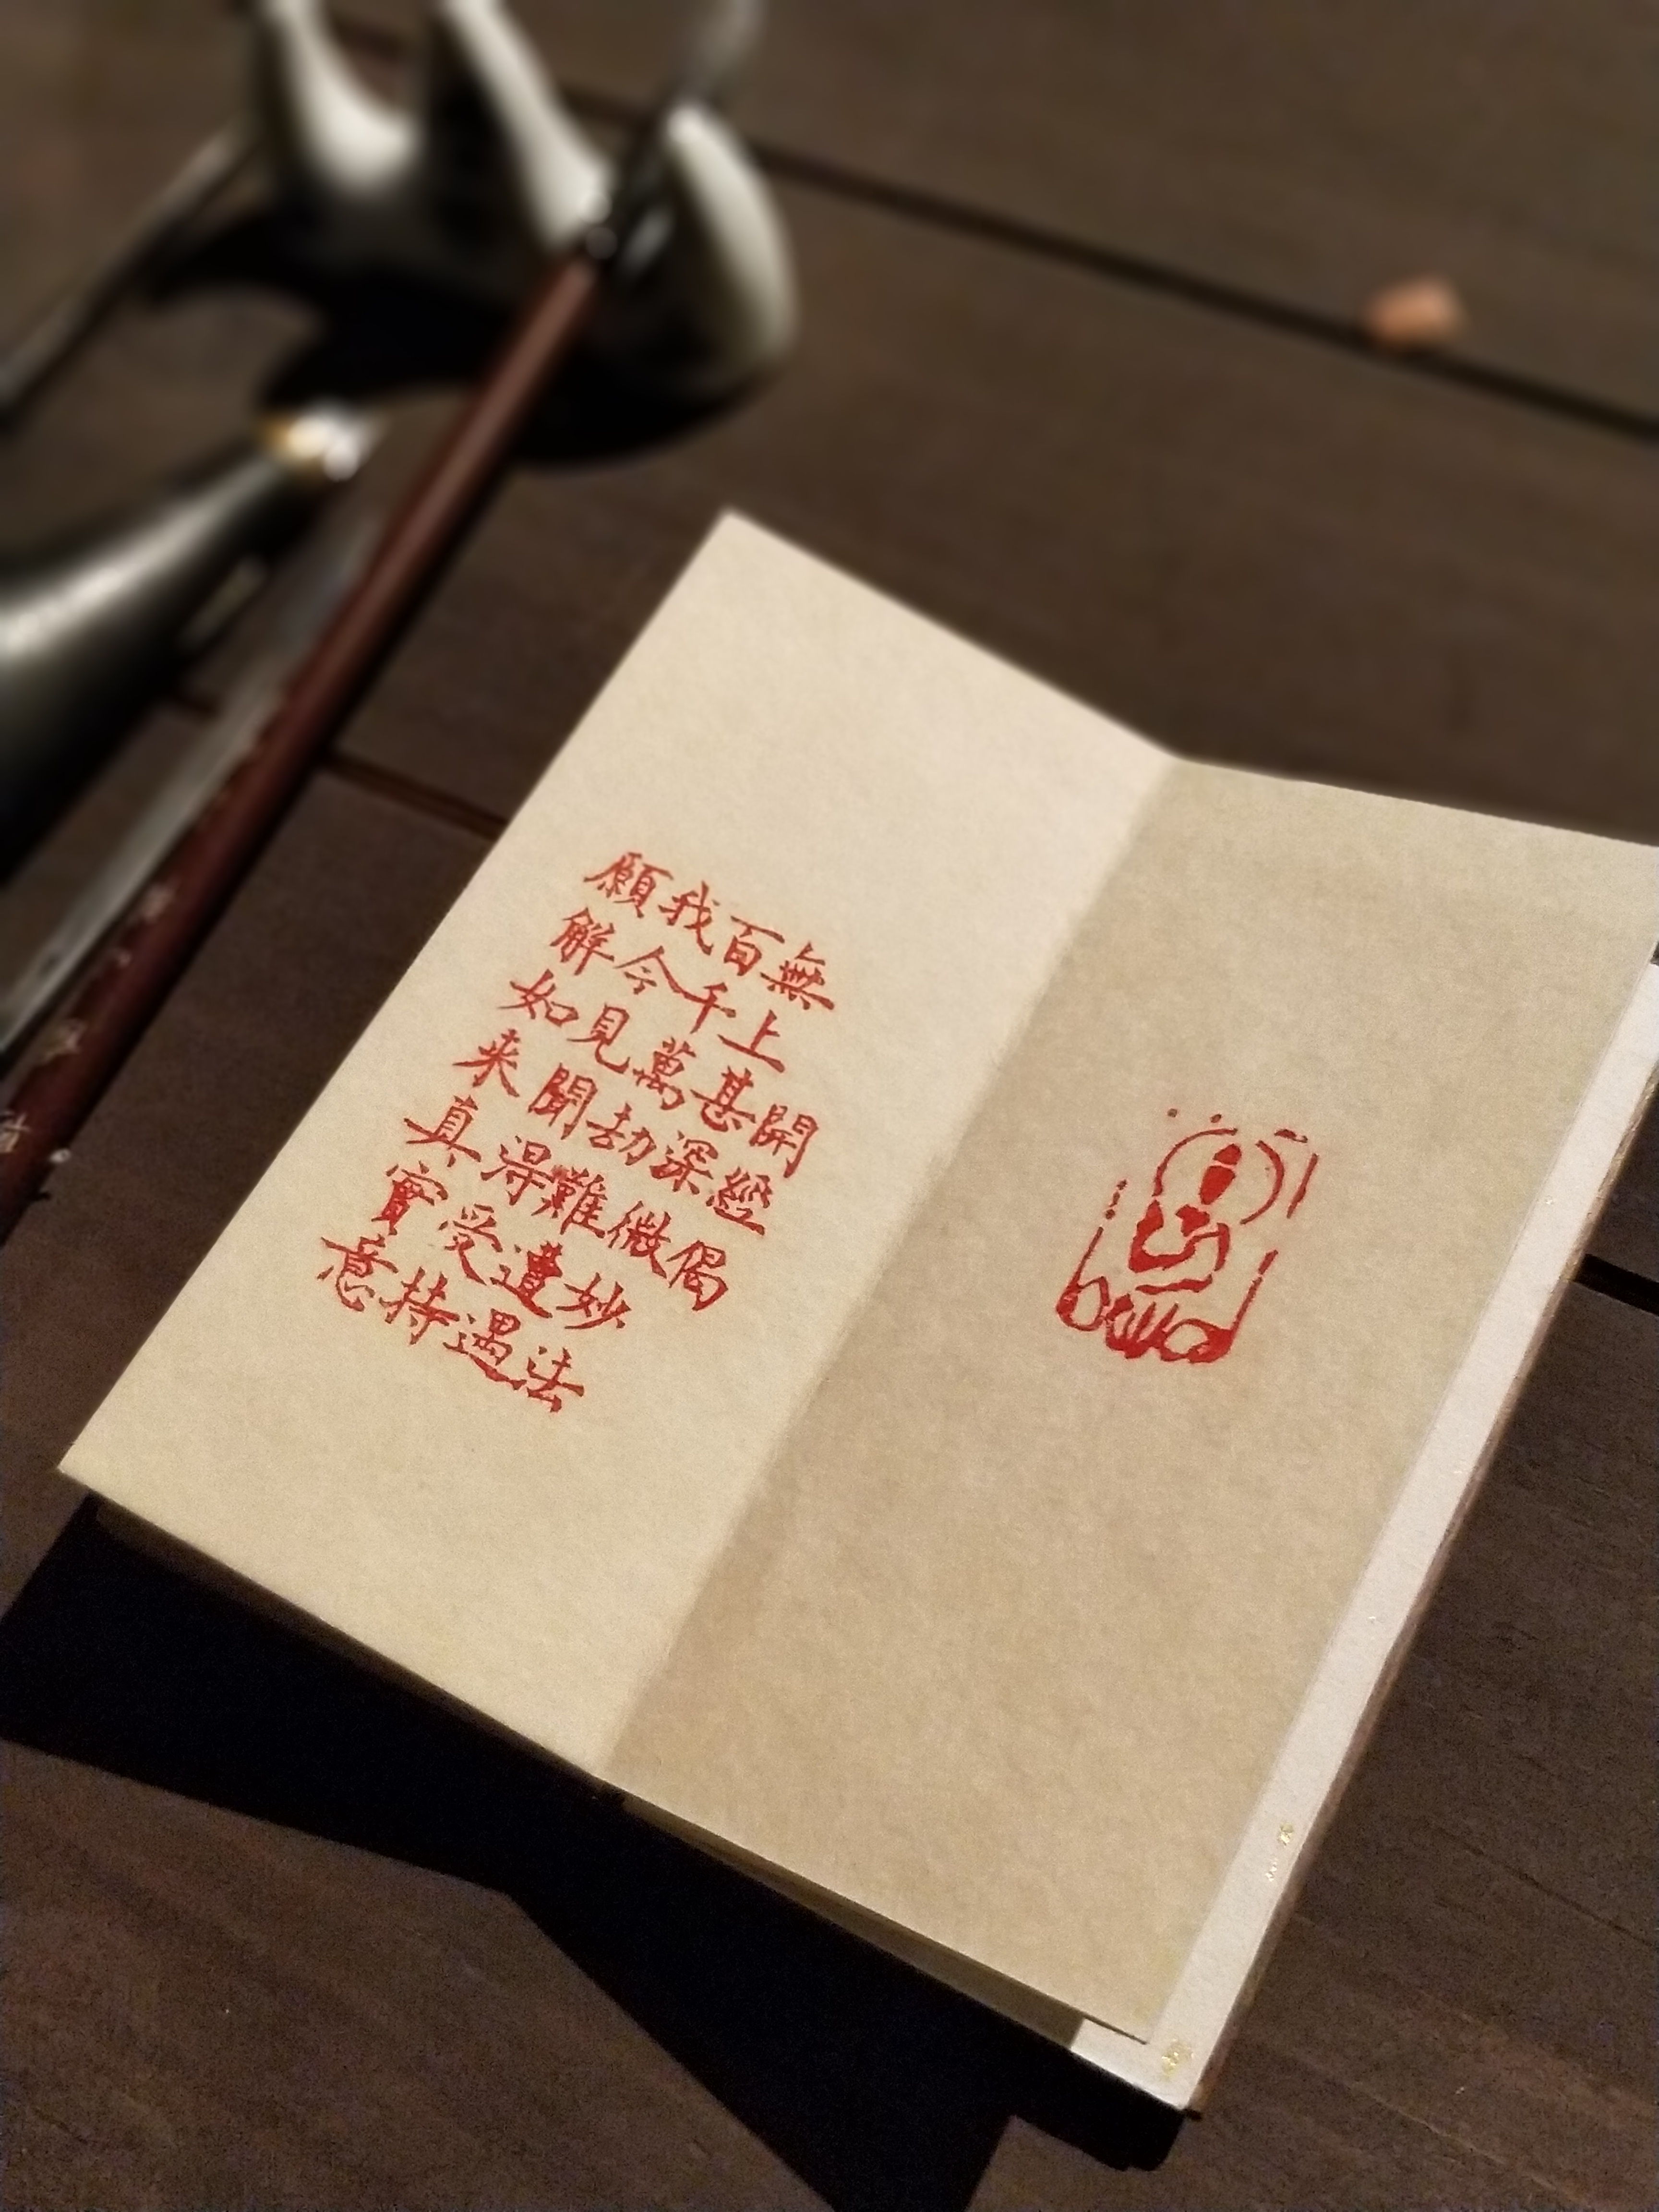 開經偈
無上甚深微妙法
百千萬劫難遭遇
我今見聞得受持
願解如来真實意